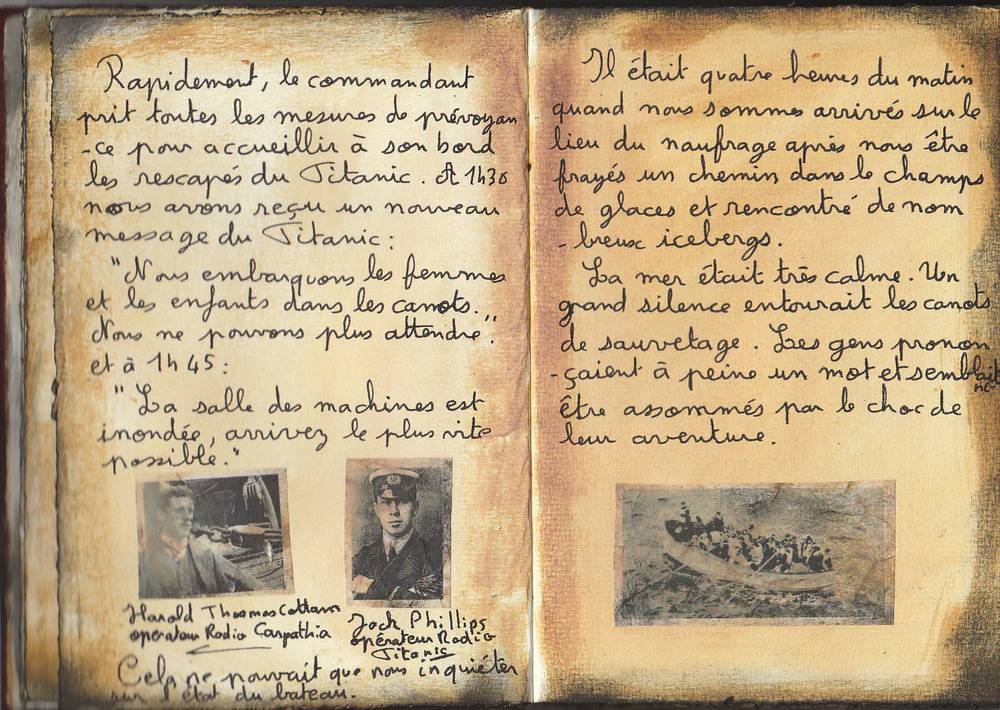 Rapidement, le commandant
prit toutes les mesures de prévoyan
-ce pour accueillir à son bord
les rescapés du Titanic. A 1h30
nous avons reçu un nouveau
message du Titanic :
"Nous embarquons les femmes
et les enfants dans les canots.
Nous ne pouvons plus attendre".
et à 1h45 :
"La salle des machines est
inondée, arrivez le plus vite
possible."
Harold Thomas Cottam
opérateur Radio Carpathia
Jack Phillips
opérateur Radio
Titanic
Cela ne pouvait que nous inquiéter
sur l'état du bateau.
Il était quatre heures du matin
quand nous sommes arrivés sur le
lieu du naufrage après nous être
frayés un chemin dans le champs
de glaces et rencontré de nom
-breux icebergs.
La mer était très calme. Un
grand silence entourait les canots
de sauvetage. Les gens pronon
-çaient à peine un mot et semblaient
être assommés par le choc de
leur aventure.